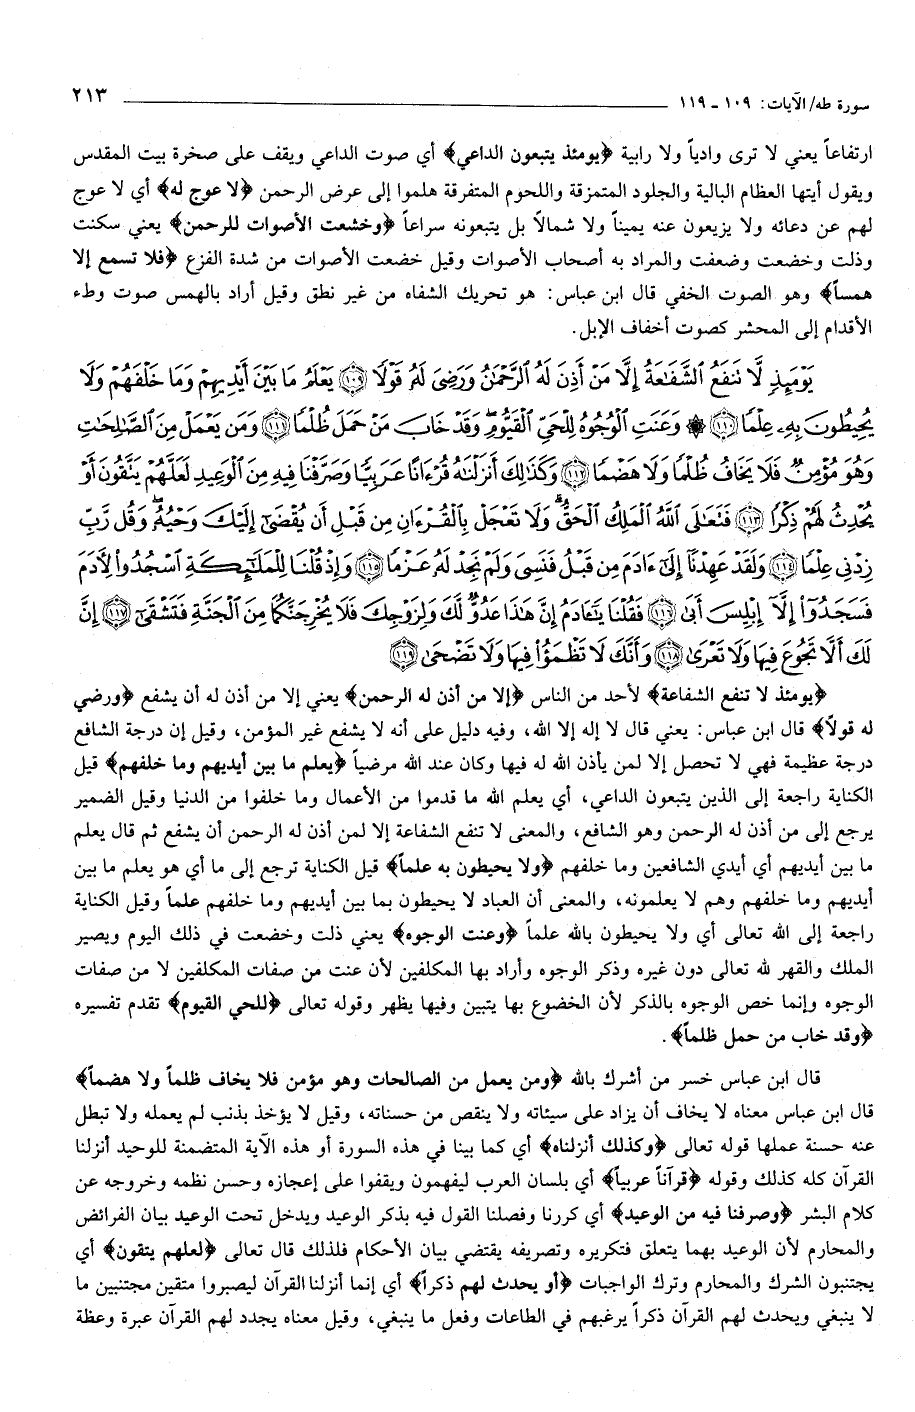 سورة طه/ الآيات: ١٠٩ ـ ١١٩ ٢١٣
ارتفاعاً يعني لا ترى وادياً ولا رابية ﴿يومئذ يتبعون الداعي﴾ أي صوت الداعي ويقف على صخرة بيت المقدس
ويقول أيتها العظام البالية والجلود المتمزقة واللحوم المتفرقة هلموا إلى عرض الرحمن ﴿لا عوج له﴾ أي لا عوج
لهم عن دعائه ولا يزيعون عنه يميناً ولا شمالاً بل يتبعونه سراعاً ﴿وخشعت الأصوات للرحمن﴾ يعني سكنت
وذلت وخضعت وضعفت والمراد به أصحاب الأصوات وقيل خضعت الأصوات من شدة الفزع ﴿فلا تسمع إلا
همساً﴾ وهو الصوت الخفي قال ابن عباس: هو تحريك الشفاه من غير نطق وقيل أراد بالهمس صوت وطء
الأقدام إلى المحشر كصوت أخفاف الإبل.
يَوْمَئِذٍ لَّا تَنفَعُ ٱلشَّفَٰعَةُ إِلَّا مَنْ أَذِنَ لَهُ ٱلرَّحْمَٰنُ وَرَضِىَ لَهُۥ قَوْلًا ﴿١٠٩﴾ يَعْلَمُ مَا بَيْنَ أَيْدِيهِمْ وَمَا خَلْفَهُمْ وَلَا
يُحِيطُونَ بِهِۦ عِلْمًا ﴿١١٠﴾ ۞ وَعَنَتِ ٱلْوُجُوهُ لِلْحَىِّ ٱلْقَيُّومِ ۖ وَقَدْ خَابَ مَنْ حَمَلَ ظُلْمًا ﴿١١١﴾ وَمَن يَعْمَلْ مِنَ ٱلصَّٰلِحَٰتِ
وَهُوَ مُؤْمِنٌ فَلَا يَخَافُ ظُلْمًا وَلَا هَضْمًا ﴿١١٢﴾ وَكَذَٰلِكَ أَنزَلْنَٰهُ قُرْءَانًا عَرَبِيًّا وَصَرَّفْنَا فِيهِ مِنَ ٱلْوَعِيدِ لَعَلَّهُمْ يَتَّقُونَ أَوْ
يُحْدِثُ لَهُمْ ذِكْرًا ﴿١١٣﴾ فَتَعَٰلَى ٱللَّهُ ٱلْمَلِكُ ٱلْحَقُّ ۗ وَلَا تَعْجَلْ بِٱلْقُرْءَانِ مِن قَبْلِ أَن يُقْضَىٰٓ إِلَيْكَ وَحْيُهُۥ ۖ وَقُل رَّبِّ
زِدْنِى عِلْمًا ﴿١١٤﴾ وَلَقَدْ عَهِدْنَآ إِلَىٰٓ ءَادَمَ مِن قَبْلُ فَنَسِىَ وَلَمْ نَجِدْ لَهُۥ عَزْمًا ﴿١١٥﴾ وَإِذْ قُلْنَا لِلْمَلَٰٓئِكَةِ ٱسْجُدُوا۟ لِءَادَمَ
فَسَجَدُوٓا۟ إِلَّآ إِبْلِيسَ أَبَىٰ ﴿١١٦﴾ فَقُلْنَا يَٰٓـَٔادَمُ إِنَّ هَٰذَا عَدُوٌّ لَّكَ وَلِزَوْجِكَ فَلَا يُخْرِجَنَّكُمَا مِنَ ٱلْجَنَّةِ فَتَشْقَىٰٓ ﴿١١٧﴾ إِنَّ
لَكَ أَلَّا تَجُوعَ فِيهَا وَلَا تَعْرَىٰ ﴿١١٨﴾ وَأَنَّكَ لَا تَظْمَؤُا۟ فِيهَا وَلَا تَضْحَىٰ ﴿١١٩﴾
﴿يومئذ لا تنفع الشفاعة﴾ لأحد من الناس ﴿إلا من أذن له الرحمن﴾ يعني إلا من أذن له أن يشفع ﴿ورضي
له قولاً﴾ قال ابن عباس: يعني قال لا إله إلا الله، وفيه دليل على أنه لا يشفع غير المؤمن، وقيل إن درجة الشافع
درجة عظيمة فهي لا تحصل إلا لمن يأذن الله له فيها وكان عند الله مرضياً ﴿يعلم ما بين أيديهم وما خلفهم﴾ قيل
الكناية راجعة إلى الذين يتبعون الداعي، أي يعلم الله ما قدموا من الأعمال وما خلفوا من الدنيا وقيل الضمير
يرجع إلى من أذن له الرحمن وهو الشافع، والمعنى لا تنفع الشفاعة إلا لمن أذن له الرحمن أن يشفع ثم قال يعلم
ما بين أيديهم أي أيدي الشافعين وما خلفهم ﴿ولا يحيطون به علماً﴾ قيل الكناية ترجع إلى ما أي هو يعلم ما بين
أيديهم وما خلفهم وهم لا يعلمونه، والمعنى أن العباد لا يحيطون بما بين أيديهم وما خلفهم علماً وقيل الكناية
راجعة إلى الله تعالى أي ولا يحيطون بالله علماً ﴿وعنت الوجوه﴾ يعني ذلت وخضعت في ذلك اليوم ويصير
الملك والقهر لله تعالى دون غيره وذكر الوجوه وأراد بها المكلفين لأن عنت من صفات المكلفين لا من صفات
الوجوه وإنما خص الوجوه بالذكر لأن الخضوع بها يتبين وفيها يظهر وقوله تعالى ﴿للحي القيوم﴾ تقدم تفسيره
﴿وقد خاب من حمل ظلماً﴾.
قال ابن عباس خسر من أشرك بالله ﴿ومن يعمل من الصالحات وهو مؤمن فلا يخاف ظلماً ولا هضماً﴾
قال ابن عباس معناه لا يخاف أن يزاد على سيئاته ولا ينقص من حسناته، وقيل لا يؤخذ بذنب لم يعمله ولا تبطل
عنه حسنة عملها قوله تعالى ﴿وكذلك أنزلناه﴾ أي كما بينا في هذه السورة أو هذه الآية المتضمنة للوحيد أنزلنا
القرآن كله كذلك وقوله ﴿قرآناً عربياً﴾ أي بلسان العرب ليفهمون ويقفوا على إعجازه وحسن نظمه وخروجه عن
كلام البشر ﴿وصرفنا فيه من الوعيد﴾ أي كررنا وفصلنا القول فيه بذكر الوعيد ويدخل تحت الوعيد بيان الفرائض
والمحارم لأن الوعيد بهما يتعلق فتكريره وتصريفه يقتضي بيان الأحكام فلذلك قال تعالى ﴿لعلهم يتقون﴾ أي
يجتنبون الشرك والمحارم وترك الواجبات ﴿أو يحدث لهم ذكراً﴾ أي إنما أنزلنا القرآن ليصبروا متقين مجتنبين ما
لا ينبغي ويحدث لهم القرآن ذكراً يرغبهم في الطاعات وفعل ما ينبغي، وقيل معناه يجدد لهم القرآن عبرة وعظة